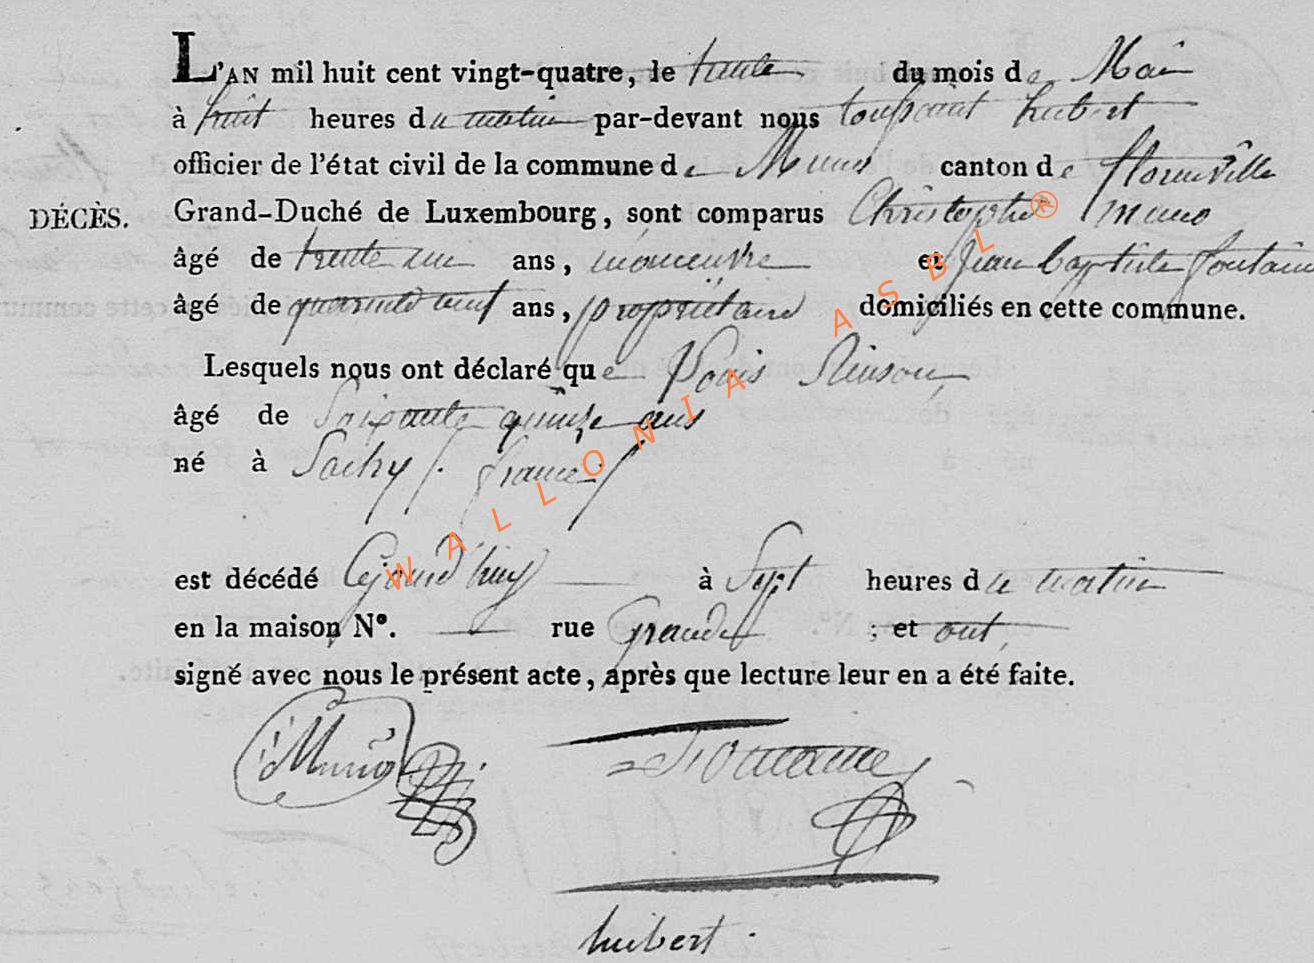 L'AN mil huit cent vingt-quatre, le trente du mois de Mai
à huit heures du matin par-devant nous toussaint hubert
officier de l'état civil de la commune de Muno canton de florenville
DÉCÈS.
Grand-Duché de Luxembourg, sont comparus Christophe Muno
âgé de trente un ans, manœuvre et Jean baptiste fontaine
âgé de quarante neuf ans, propriétaire domiciliés en cette commune.
Lesquels nous ont déclaré que
âgé de Soixante quinze ans
né à Sachy /. france /
est décédé Cejourd'huy à Sept heures du matin
en la maison N°. — rue Grande ; et ont,
signé avec nous le présent acte, après que lecture leur en a été faite.
Muno
fontaine
hubert.
WALLONIA ASBL ®